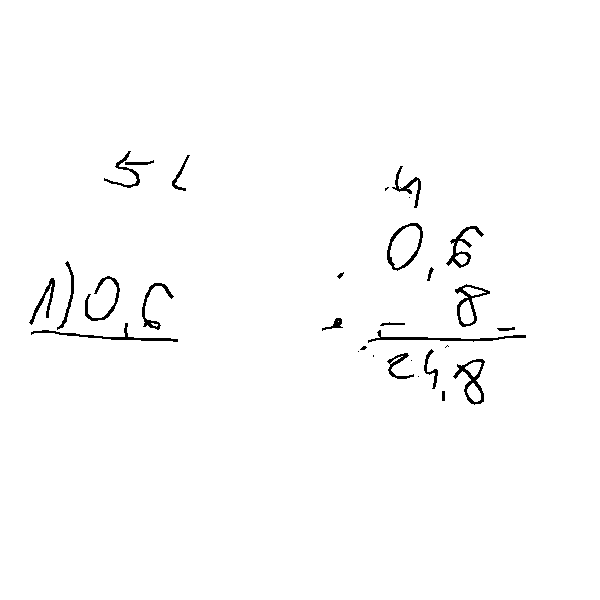 5 L
4
0,6
1) 0,6
8
24,8